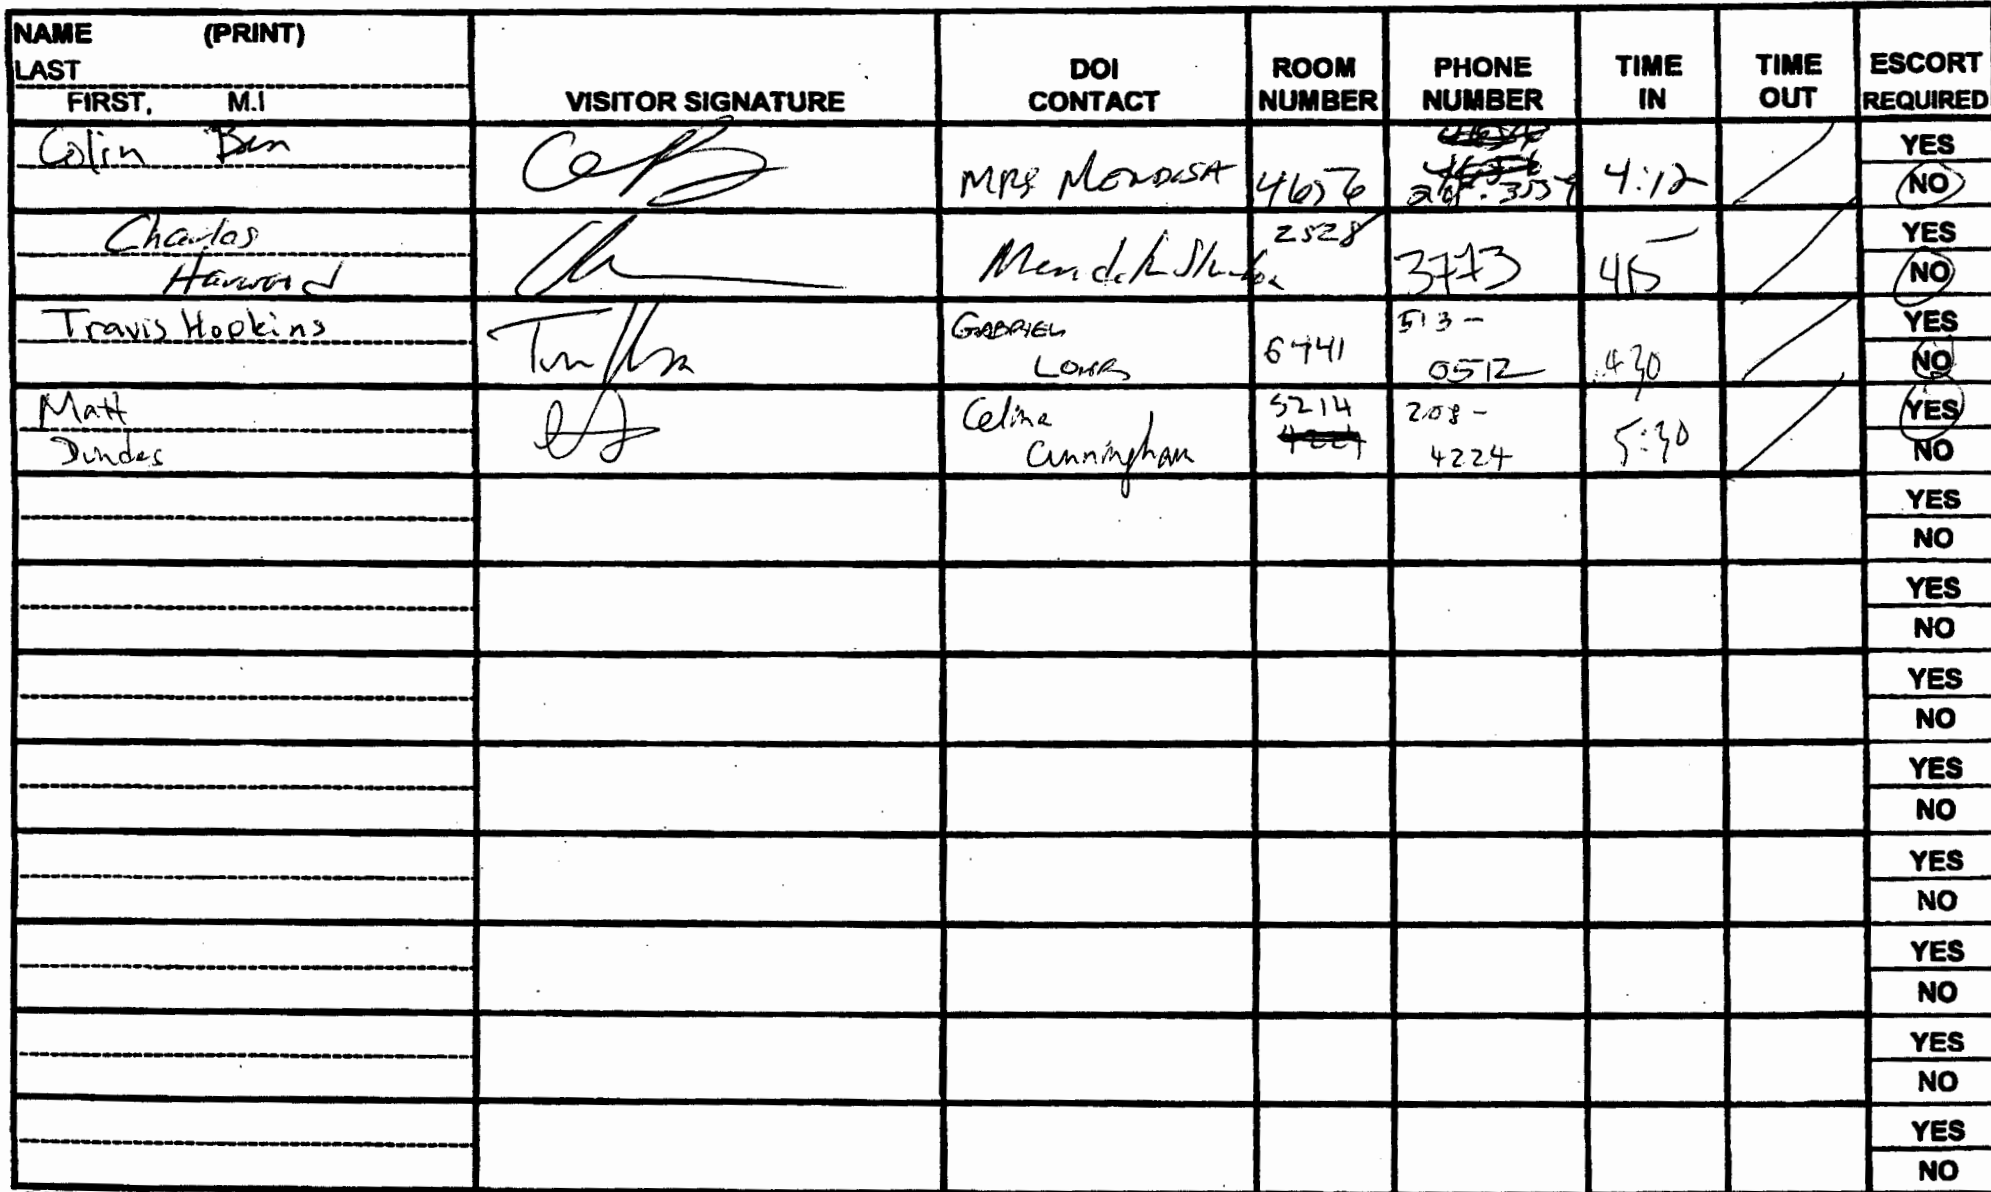 NAME (PRINT)
LAST
FIRST, M.I
VISITOR SIGNATURE
DOI
CONTACT
ROOM
NUMBER
PHONE
NUMBER
TIME
IN
TIME
OUT
ESCORT
REQUIRED
Colin Ben
MRS MENDOSA
4656
4:12
YES
NO
Charlos
Harwood
2528
3773
415
YES
NO
Travis Hopkins
GABRIEL
6441
513-
0512
430
YES
NO
Matt
Dundas
Celina
Cunningham
5214
4224
208-
4224
5:30
YES
NO
YES
NO
YES
NO
YES
NO
YES
NO
YES
NO
YES
NO
YES
NO
YES
NO